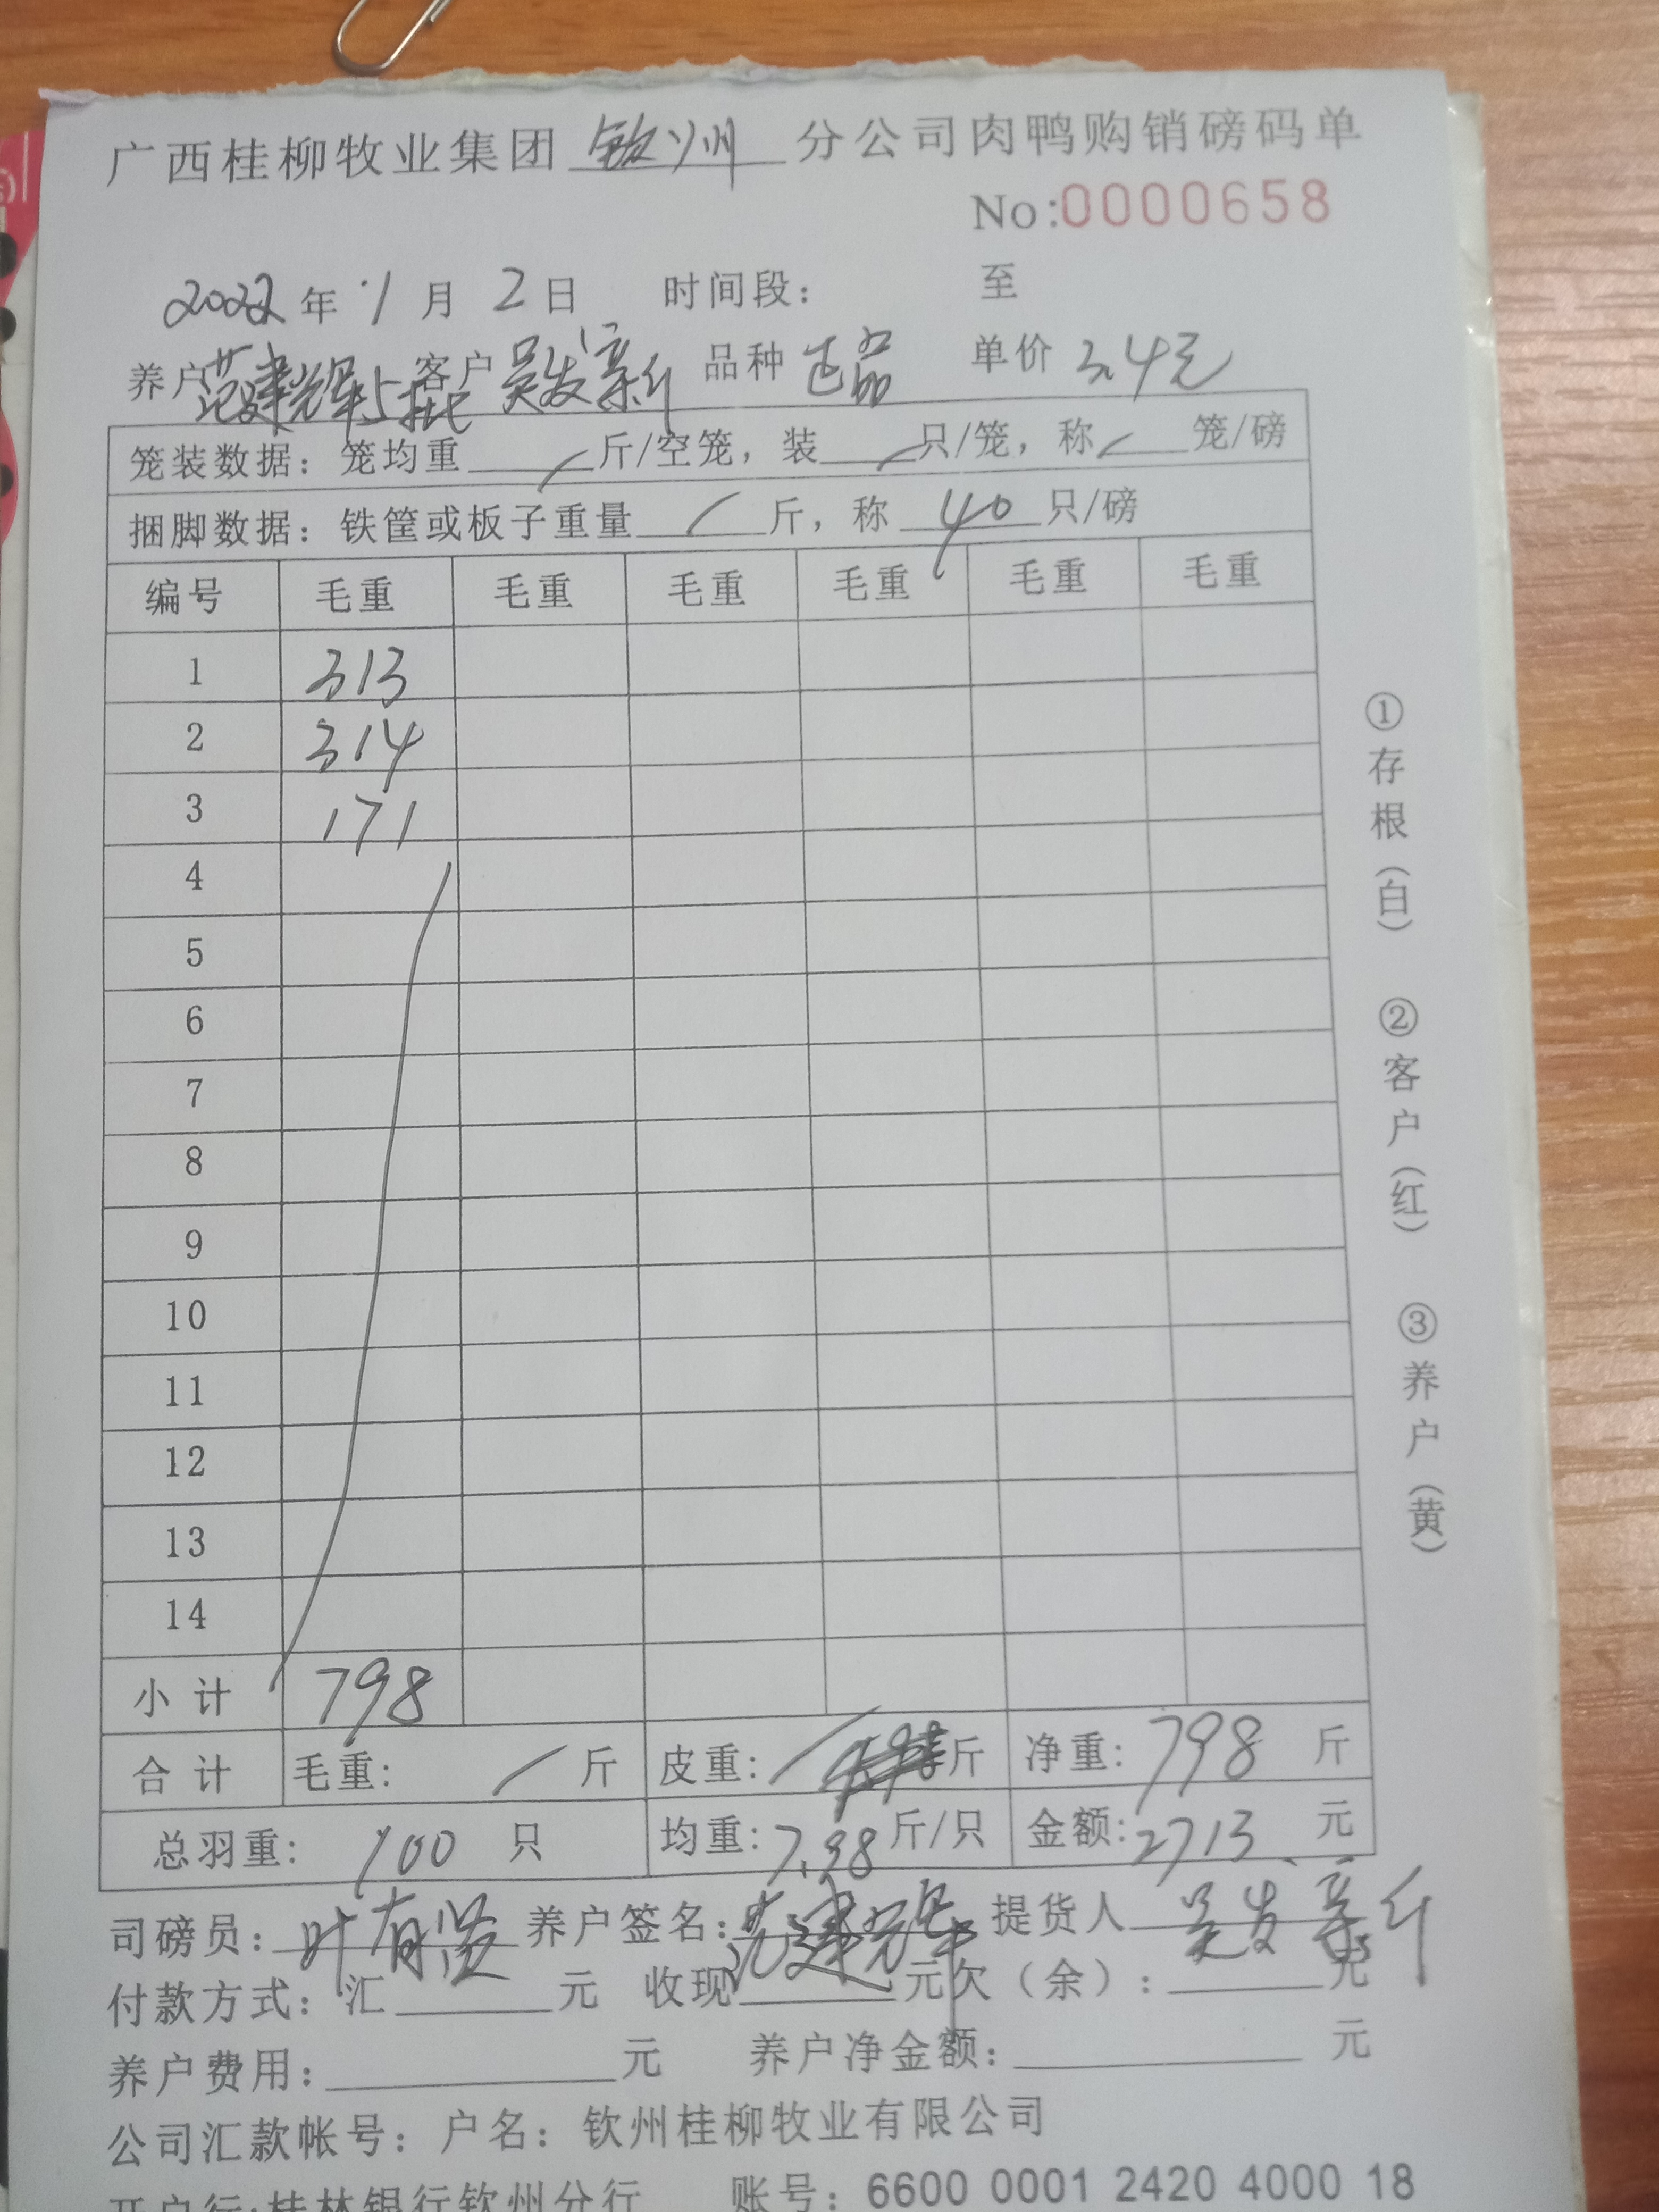 广西桂柳牧业集团 钦州 分公司肉鸭购销磅码单
No:0000658
2022 年 1 月 2 日 时间段: 至
养户 范建辉上批 客户 吴发新 品种 正品 单价 3.4元
笼装数据: 笼均重 / 斤/空笼, 装 / 只/笼, 称 / 笼/磅
捆脚数据: 铁筐或板子重量 / 斤, 称 40 只/磅
编号 毛重 毛重 毛重 毛重 毛重 毛重
1 313
2 314
3 171
4
5
6
7
8
9
10
11
12
13
14
小计 798
合计 毛重: / 斤 皮重: / 斤 净重: 798 斤
总羽重: 100 只 均重: 7.98 斤/只 金额: 2713 元
司磅员: 叶有 养户签名: 范建辉 提货人 吴发新
付款方式: 汇 元 收现 元欠(余): 元
养户费用: 元 养户净金额: 元
公司汇款帐号: 户名: 钦州桂柳牧业有限公司
开户行:桂林银行钦州分行 账号: 6600 0001 2420 4000 18
①存根(白) ②客户(红) ③养户(黄)